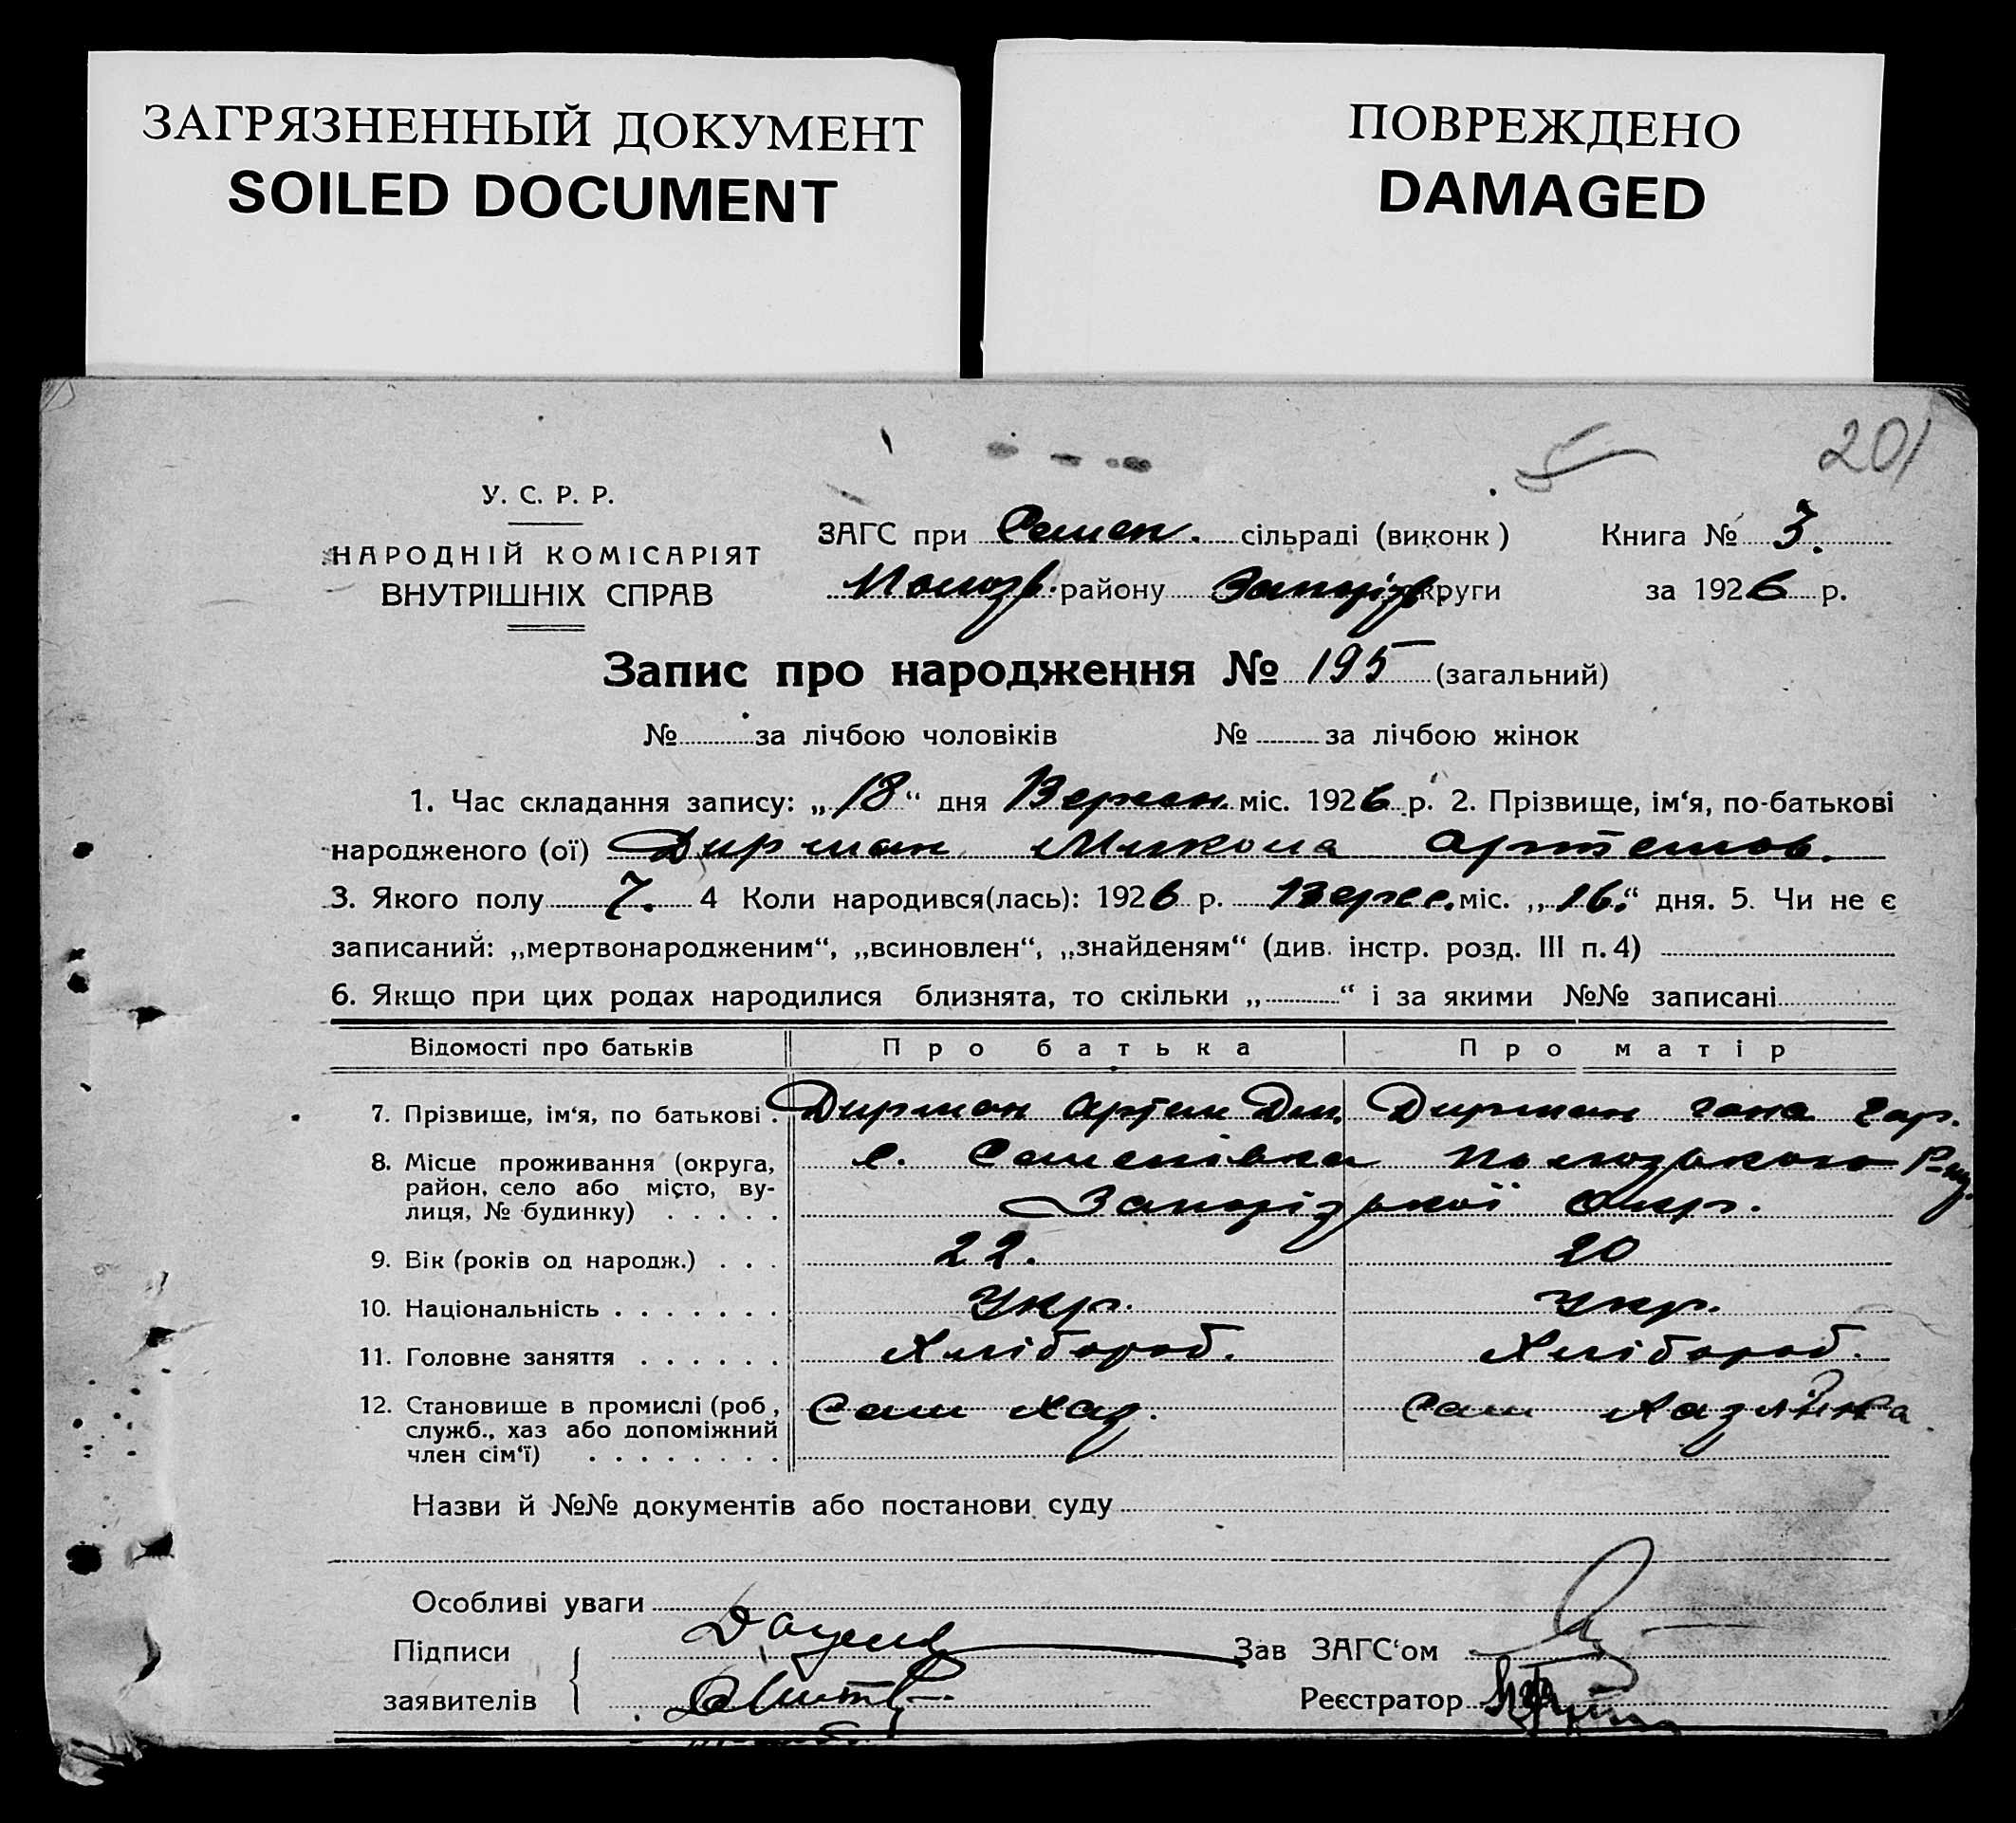 ЗАГРЯЗНЕННЫЙ ДОКУМЕНТ
SOILED DOCUMENT
ПОВРЕЖДЕНО
DAMAGED
201
У. С. Р. Р.
НАРОДНІЙ КОМІСАРІЯТ
ВНУТРІШНІХ СПРАВ
ЗАГС при Семен. сільраді (виконк) Книга № 3.
Пологів. району Запоріз. округи за 1926 р.
Запис про народження № 195 (загальний)
№ за лічбою чоловіків № за лічбою жінок
1. Час складання запису: „18“ дня Вересн. міс. 1926 р. 2. Прізвище, ім‘я, по-батькові
народженого (ої) Дирман Микола Артемов.
3. Якого полу Ч. 4 Коли народився(лась): 1926 р. Верес. міс. „16.“ дня. 5. Чи не є
записаний: „мертвонародженим“, „всиновлен“, „знайденям“ (див. інстр. розд. III п. 4)
6. Якщо при цих родах народилися близнята, то скільки „ “ і за якими №№ записані
Відомості про батьків Про батька Про матір
7. Прізвище, ім‘я, по батькові . Дирман Артем Дм. Дирман Гана
8. Місце проживання (округа, с. Семенівка Пологзького Р-ну.
район, село або місто, ву-
лиця, № будинку) . . . . . Запорізької Окр.
9. Вік (років од народж.) . . . 22. 20
10. Національність . . . . . . . Укр. Укр.
11. Головне заняття . . . . . . Хлібороб. Хлібороб.
12. Становище в промислі (роб, Сам Хаз. Сам Хазяйка
служб., хаз або допоміжний
член сім‘ї) . . . . . . . .
Назви й №№ документів або постанови суду
Особливі уваги
Підписи
заявителів
Зав ЗАГС‘ом
Реєстратор